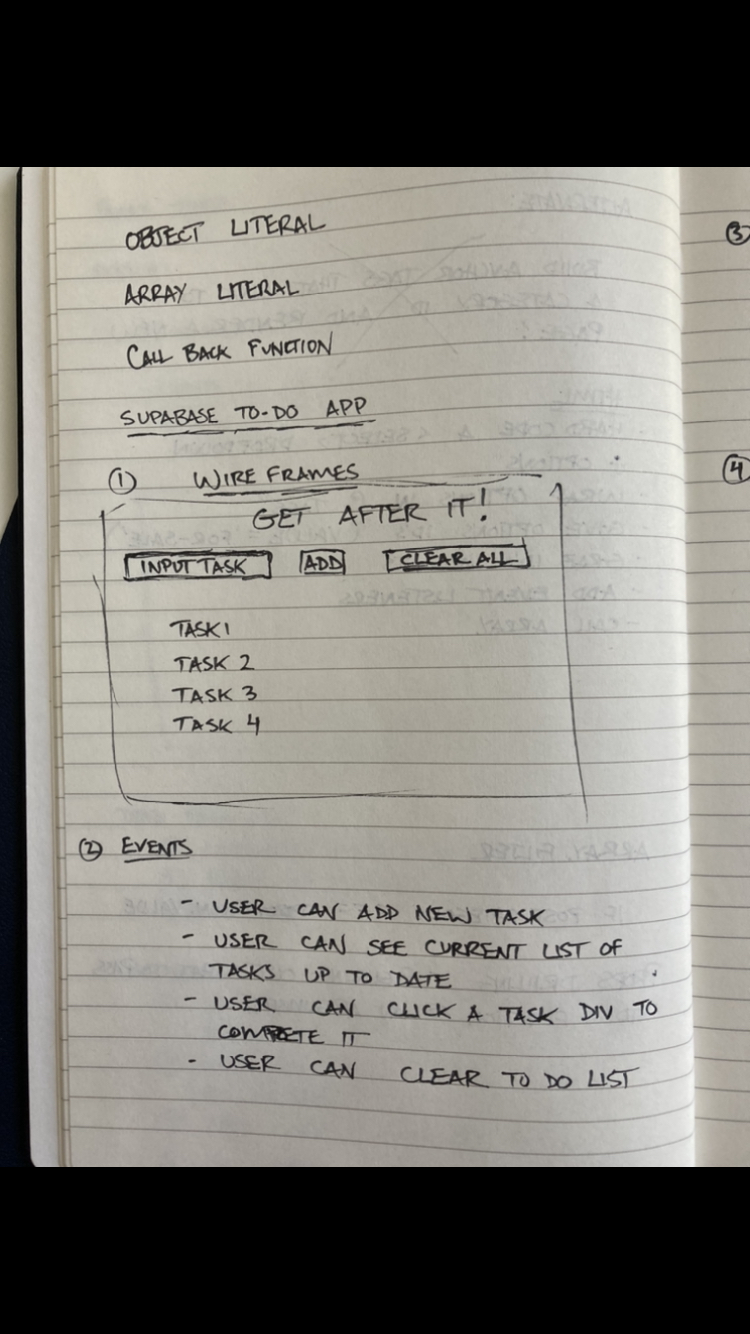 OBJECT LITERAL
ARRAY LITERAL
CALL BACK FUNCTION
SUPABASE TO-DO APP
① WIRE FRAMES
GET AFTER IT!
INPUT TASK ADD CLEAR ALL
TASK 1
TASK 2
TASK 3
TASK 4
② EVENTS
- USER CAN ADD NEW TASK
- USER CAN SEE CURRENT LIST OF
TASKS UP TO DATE
- USER CAN CLICK A TASK DIV TO
COMPLETE IT
- USER CAN CLEAR TO DO LIST
③
④